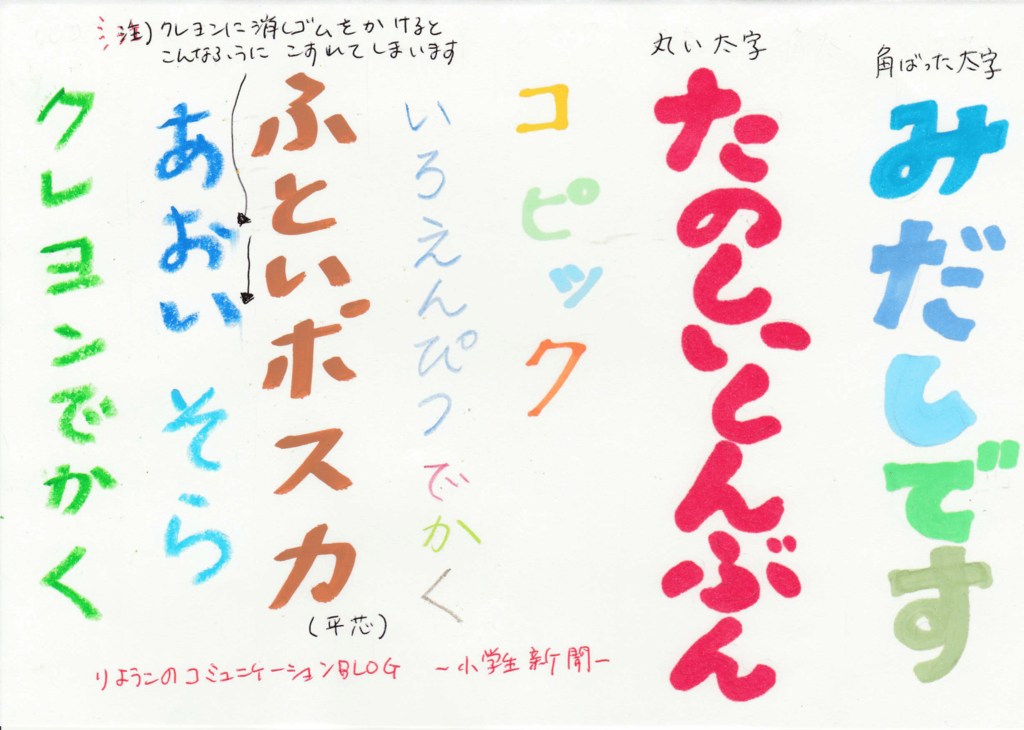 角ばった太字
みだしです
丸い太字
たのしいしんぶん
コピック
いろえんぴつでかく
ふといポスカ
(平芯)
注)クレヨンに消しゴムをかけると
こんなふうに こすれてしまいます
あおい そら
クレヨンでかく
りょうこのコミュニケーションBLOG ～小学生新聞～